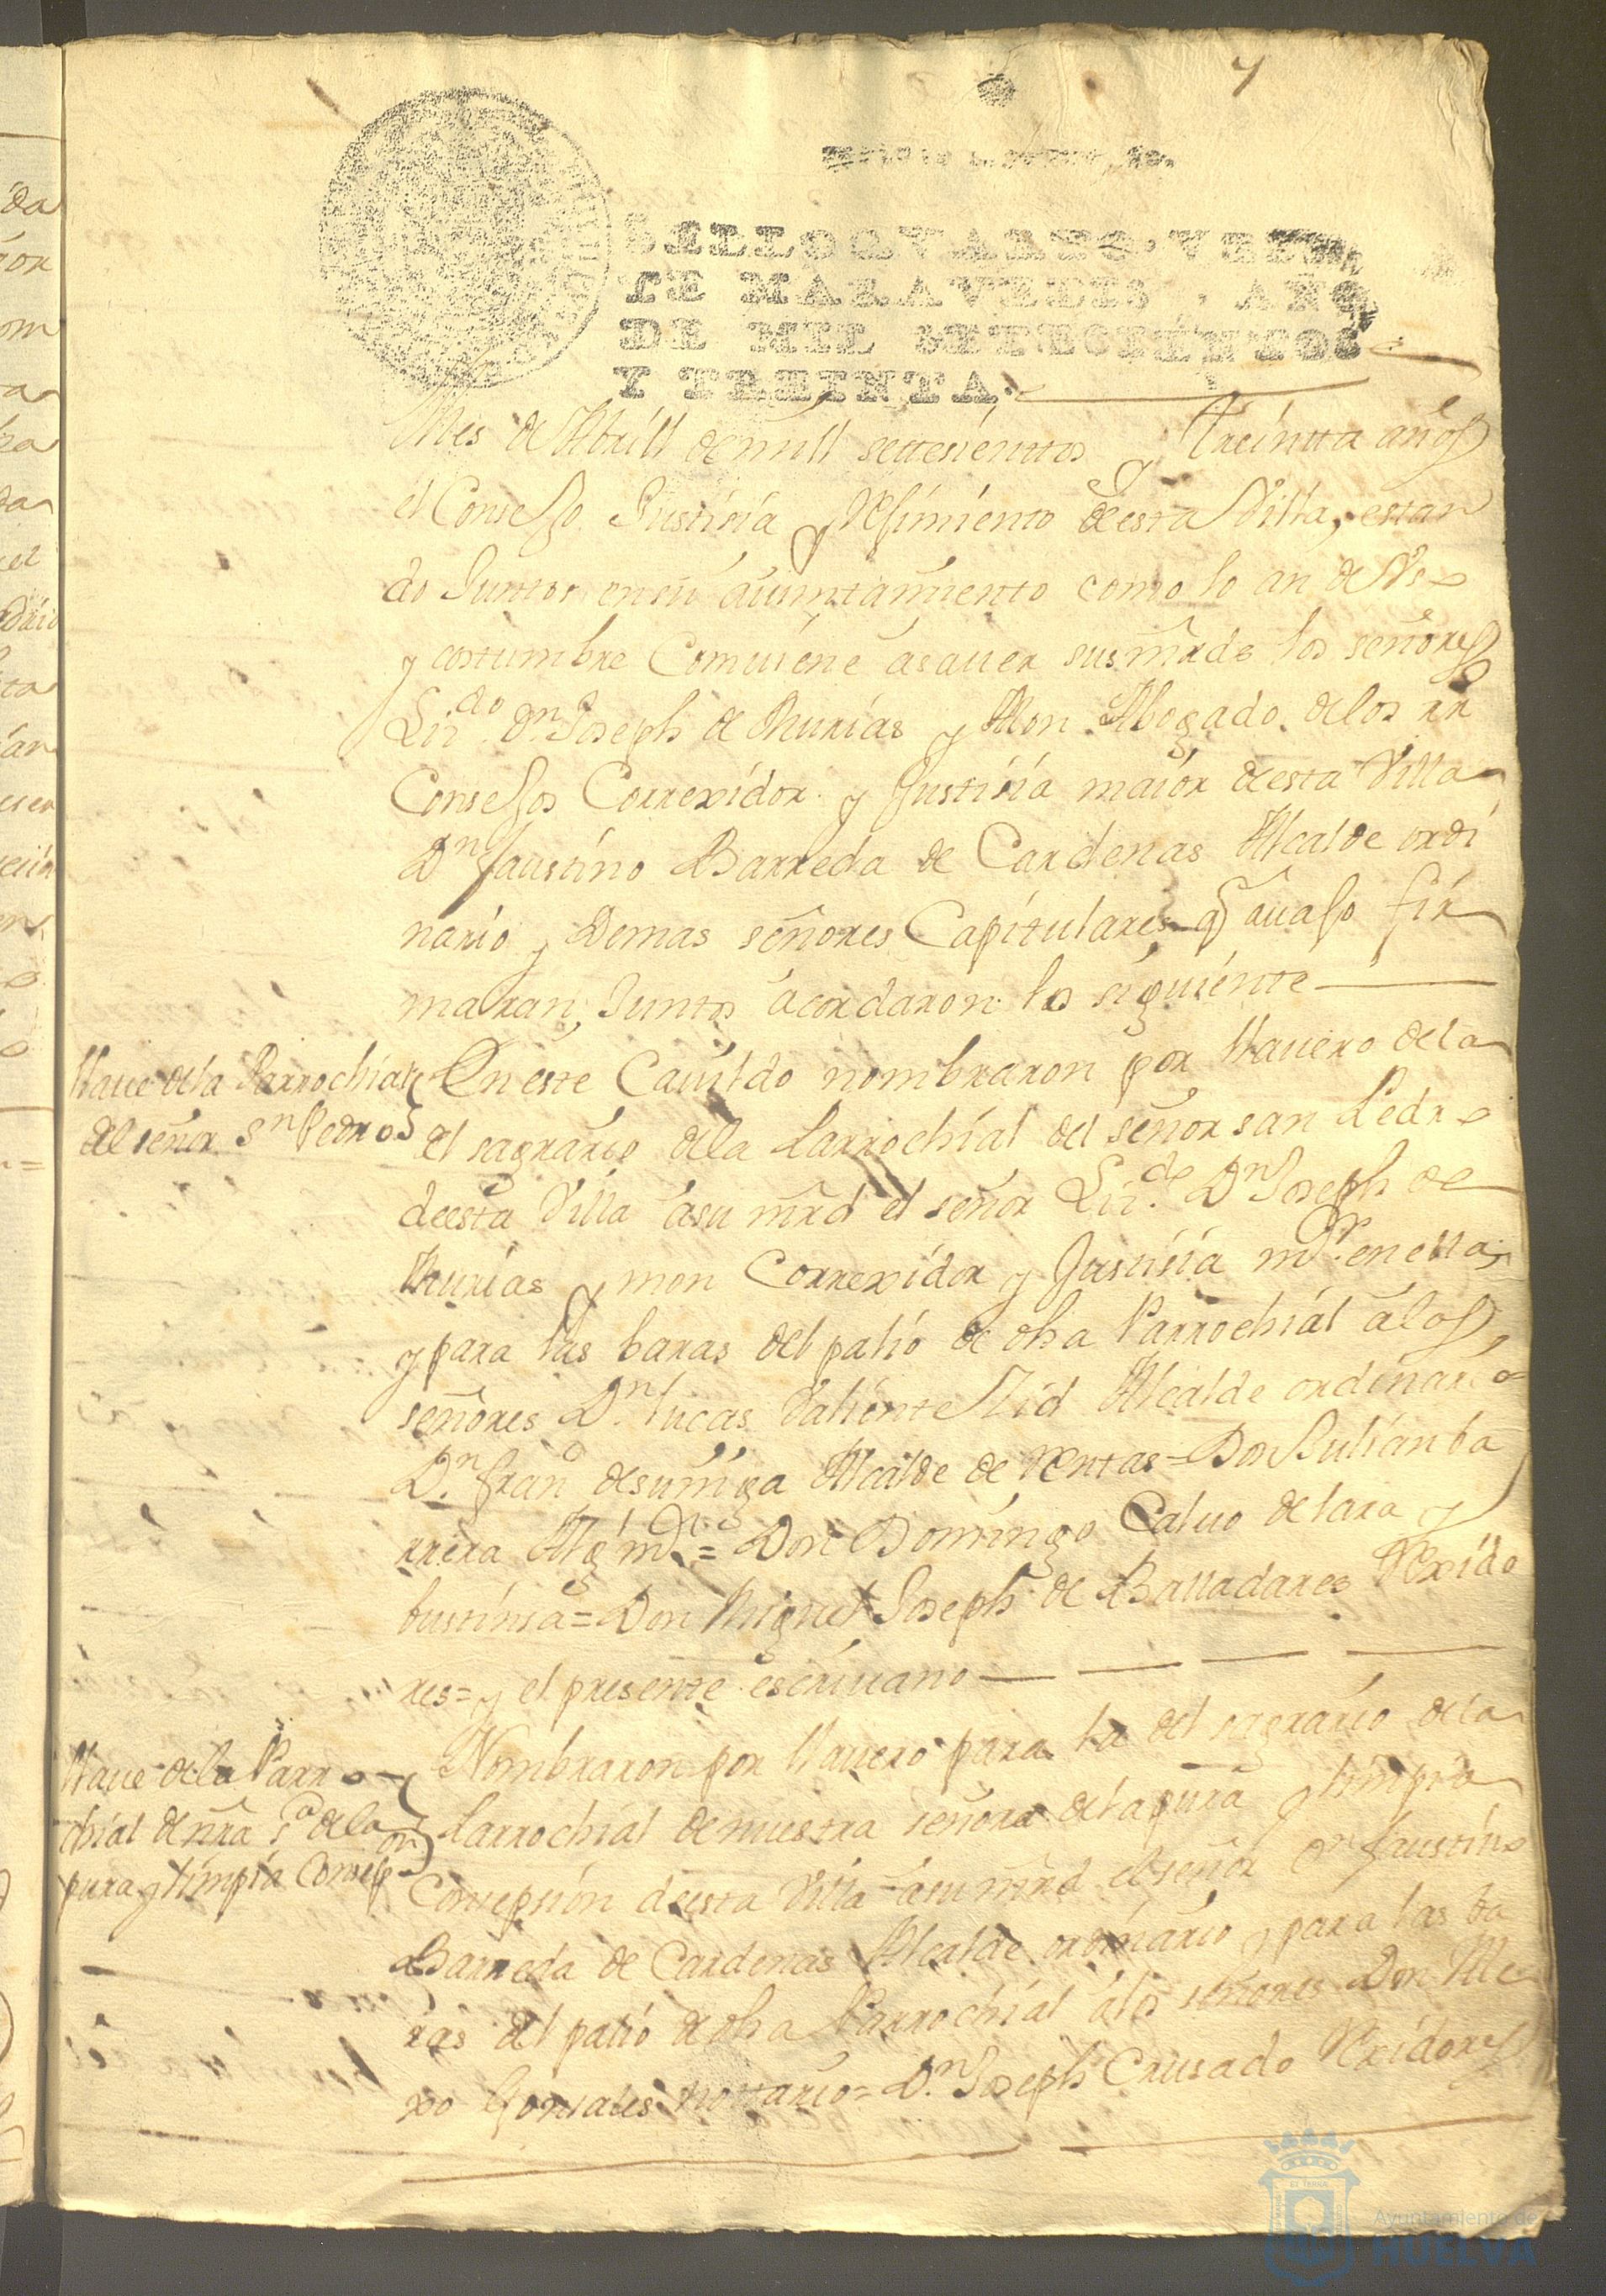 4
SELLO QVARTO, VEIN
TE MARAVEDIS, AÑO
DE MIL SETECIENTOS
Y TREINTA.
Mes de Abrill de mill settesienttos y treintta años
el Consejo Justisia y Rejimiento de esta Villa, estan
do Juntos en su aiuntamiento como lo an de Vso
y costumbre Comuiene asauer sus mrds los señores
Lizdo Dn Joseph de Murias y Mon Abogado de los RR
Consejos Correxidor y Justisia maior de esta Villa
Dn faustino Barreda de Cardenas Alcalde ordi
nario y Demas señores Capitulares q auajo fir
maran, Juntos acordaron lo siguiente
Llaue de la Parrochial
del señor Sn Pedro
En este Cauildo nombraron por llauero de la
el sagrario de la Parrochial del señor san Pedro
de esta Villa a su mrd el señor Lizdo Dn Joseph de
Murias y mon Correxidor y Justisia mor en ella
y para las baras del palio de dha Parrochial a los
señores Dn lucas Valiente Zid Alcalde ordinario
Dn frano de suniga Alcalde de Rentas = Don Julian ba
rrera Alg mor = Don Domingo Caluo de lara y
bustinsa = Don Miguel Joseph de Balladares Rexido
res = y el presente escriuano
Llaue de la Parro
chial de nra sa de la
pura y limpia Consepon
Nombraron por llauero para la del sagrario de la
Parrochial de nuestra señora de la pura y limpia
Consepsion de esta Villa a su mrd el señor Dn faustino
Barreda de Cardenas Alcalde ordinario y para las ba
ras del palio de dha Parrochial a los señores Don Ale
xo Gonsales Nottario = Dn Joseph Crusado Rexidores
Ayuntamiento de
HUELVA